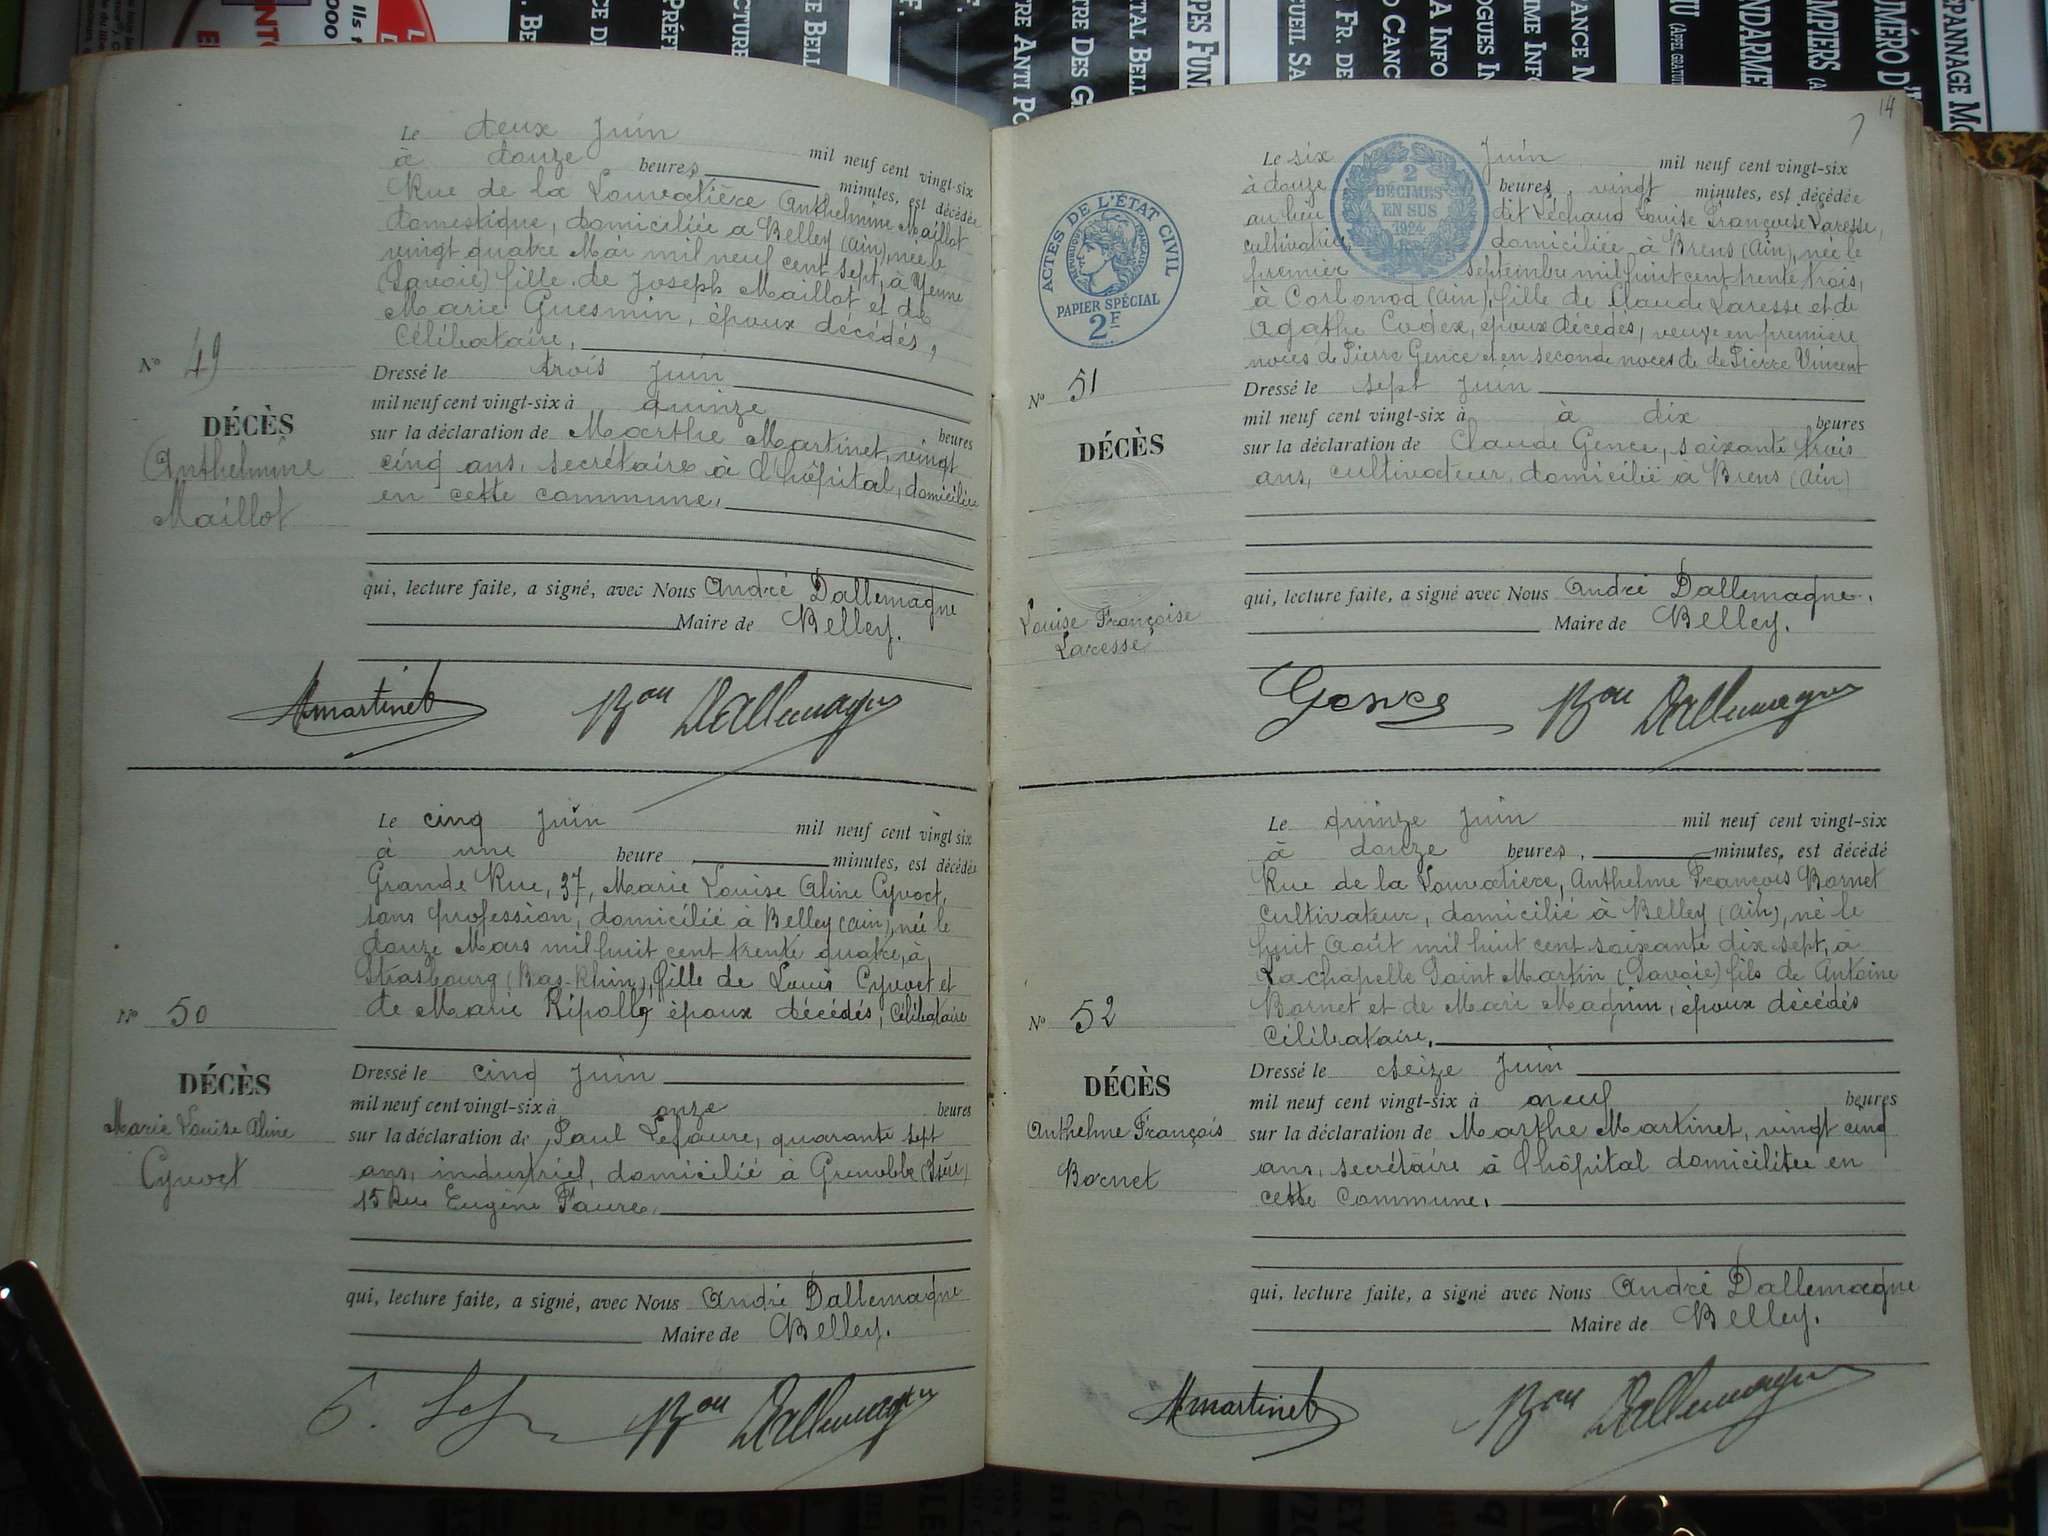 14
Le deux Juin mil neuf cent vingt-six
à douze heures minutes, est décédée
Rue de la Louvatière Anthelmine Maillot
domestique, domiciliée a Belley (Ain), née le
vingt quatre Mai mil neuf cent sept, à Yenne
(Savoie) fille de Joseph Maillot et de
Marie Guesmin, époux décédés,
Célibataire,
Nº 49
DÉCÈS
Anthelmine
Maillot
Dressé le trois Juin
mil neuf cent vingt-six à quinze heures
sur la déclaration de Marthe Martinet, vingt
cinq ans, secrétaire à l'hôpital, domiciliée
en cette commune,
qui, lecture faite, a signé, avec Nous André Dallemagne
Maire de Belley.
Mmartinet Bon Dallemagne
Le cinq Juin mil neuf cent vingt-six
à une heure minutes, est décédée
Grande Rue, 37, Marie Louise Aline Cyvoct,
sans profession, domiciliée à Belley (Ain), née le
douze Mars mil huit cent trente quatre, à
Strasbourg (Bas-Rhin), fille de Louis Cyvoct et
de Marie Ripoll, époux décédés, célibataire
Nº 50
DÉCÈS
Marie Louise Aline
Cyvoct
Dressé le cinq Juin
mil neuf cent vingt-six à onze heures
sur la déclaration de Paul Lefaure, quarante sept
ans, industriel, domicilié à Grenoble (Isère)
15 Rue Eugène Faure,
qui, lecture faite, a signé, avec Nous André Dallemagne
Maire de Belley.
Bon Dallemagne
ACTES DE L'ÉTAT CIVIL
RÉPUBLIQUE FRANÇAISE
PAPIER SPÉCIAL
2F
2
DÉCIMES
EN SUS
1924
Le six Juin mil neuf cent vingt-six
à douze heures, vingt minutes, est décédée
au lieu dit Léchaud Louise Françoise Laresse,
cultivatrice, domiciliée à Brens (Ain), née le
premier Septembre mil huit cent trente trois,
à Corbonod (Ain), fille de Claude Laresse et de
Agathe Codex, époux décédés, veuve en première
noces de Pierre Gence et en seconde noces de de Pierre Vincent
Nº 51
DÉCÈS
Louise Françoise
Laresse
Dressé le sept Juin
mil neuf cent vingt-six à à dix heures
sur la déclaration de Claude Gence, soixante trois
ans, cultivateur, domicilié a Brens (Ain)
qui, lecture faite, a signé avec Nous André Dallemagne,
Maire de Belley.
Gence Bon Dallemagne
Le quinze Juin mil neuf cent vingt-six
à douze heures, minutes, est décédé
Rue de la Louvatiere, Anthelme François Bornet
cultivateur, domicilié à Belley (Ain), né le
huit Août mil huit cent soixante dix sept, à
La Chapelle Saint Martin (Savoie) fils de Antoine
Bornet et de Mari Magnin, époux décédés
célibataire.
Nº 52
DÉCÈS
Anthelme François
Bornet
Dressé le seize Juin
mil neuf cent vingt-six à neuf heures
sur la déclaration de Marthe Martinet, vingt cinq
ans, secrétaire à l'hôpital domicilitée en
cette commune.
qui, lecture faite, a signé avec Nous André Dallemagne
Maire de Belley.
Mmartinet Bon Dallemagne